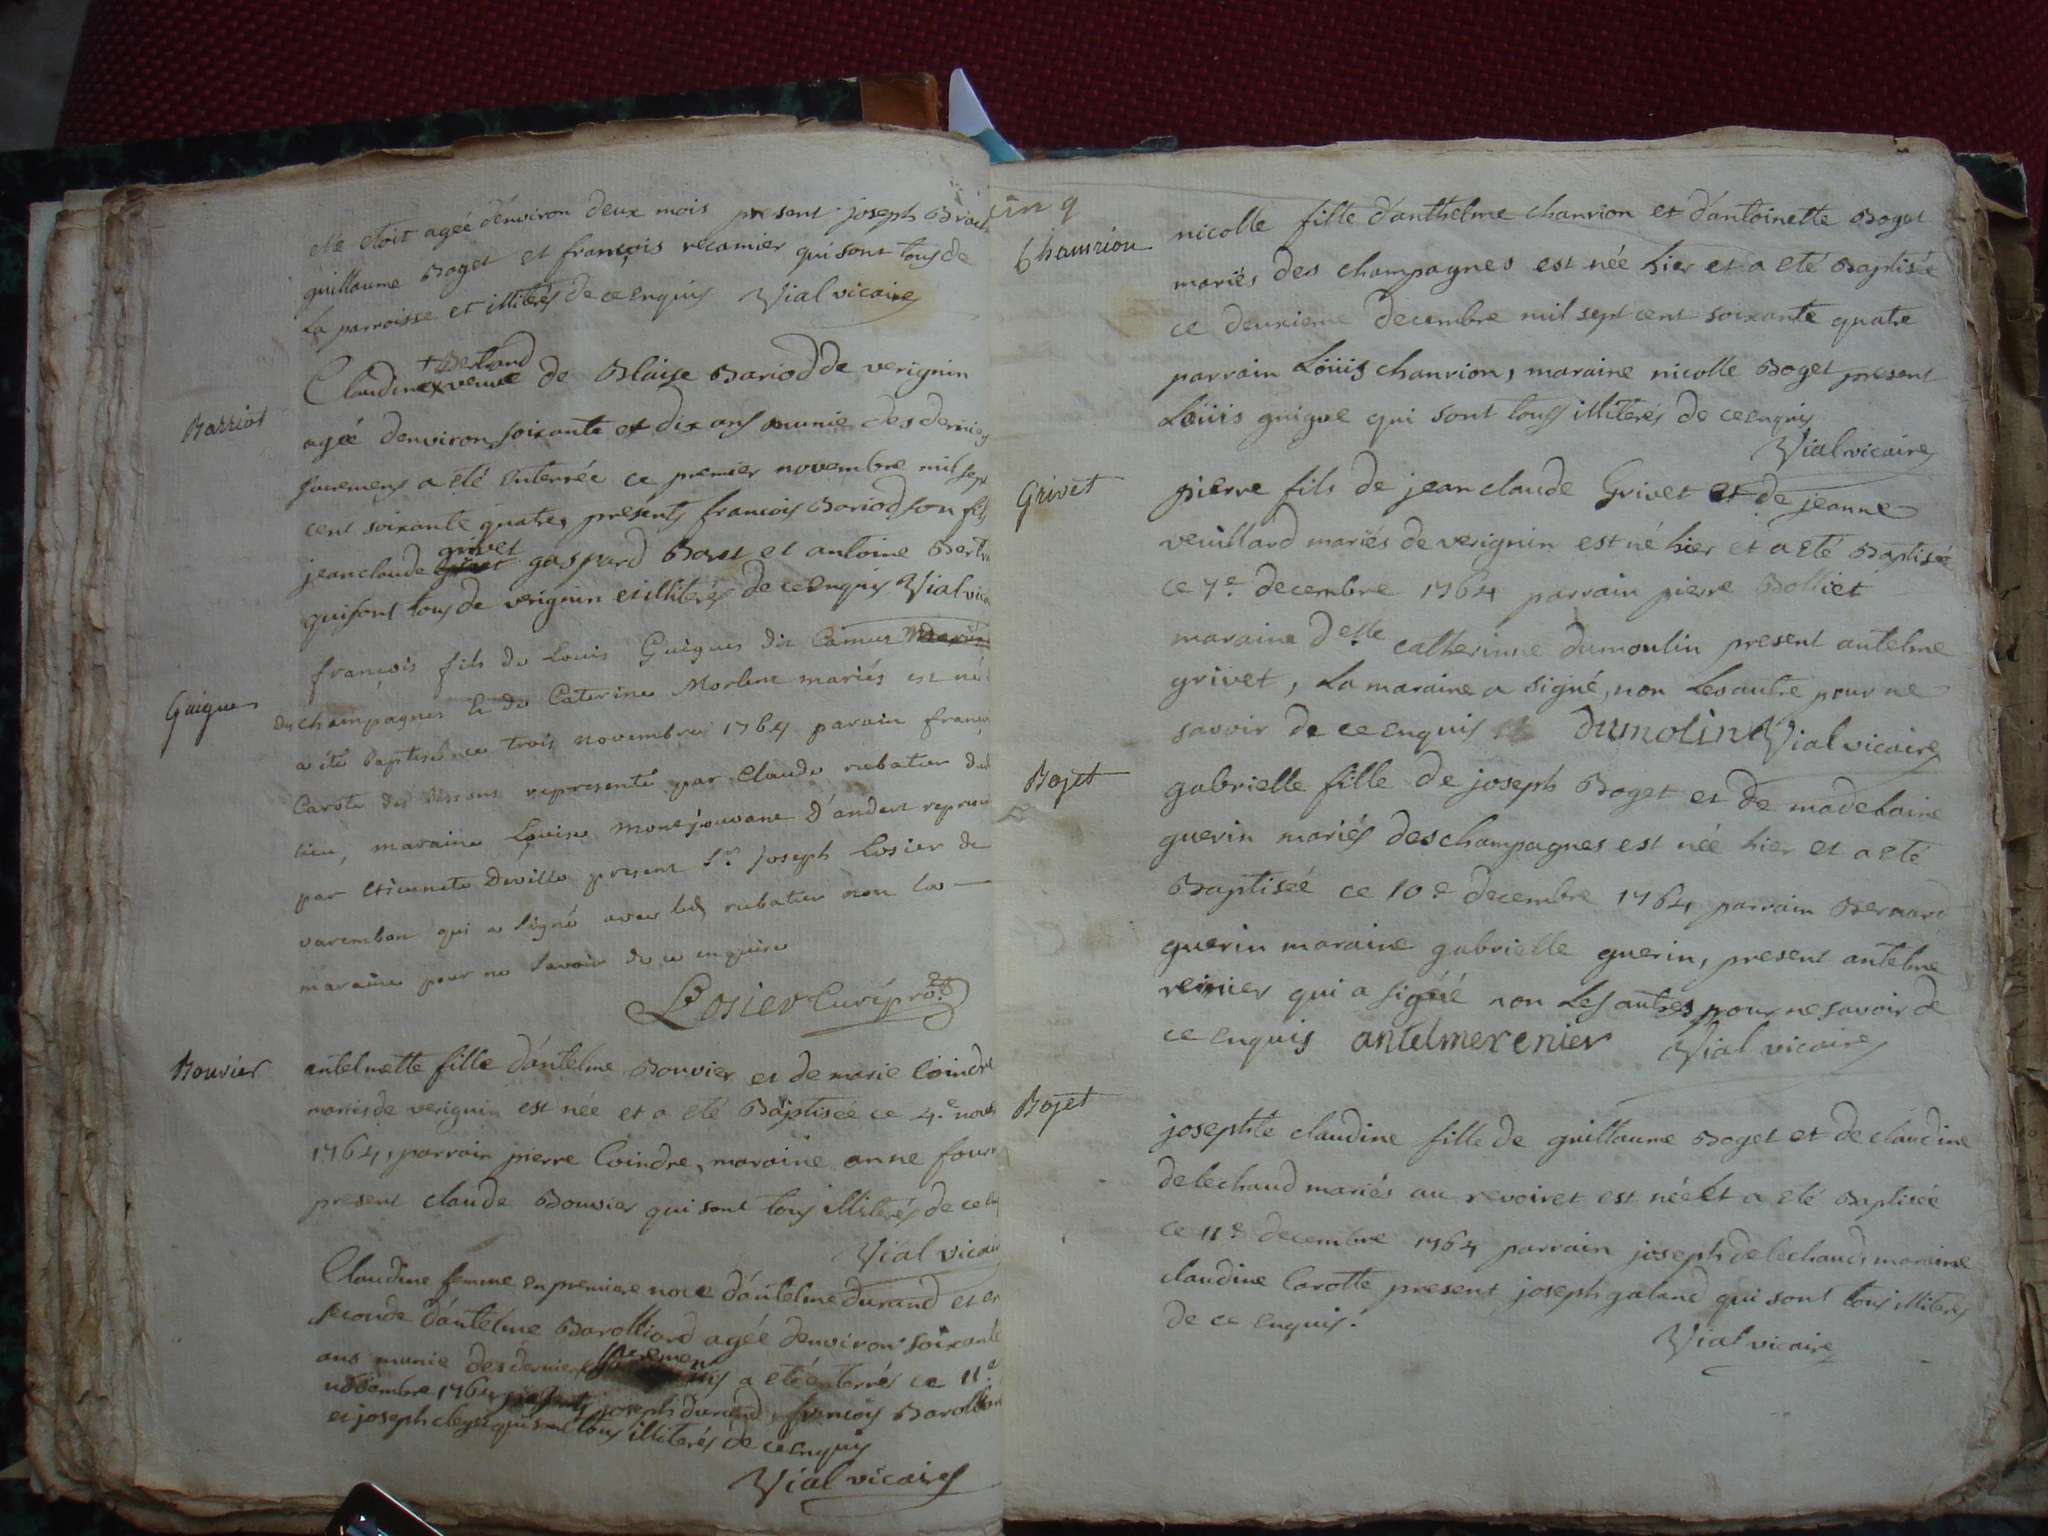 elle etoit agée d'environ deux mois present joseph
guillaume Boget et françois recamier qui sont tous de
la parroisse et illiterés de ce enquis Vial vicaire
+ Bertrand
Claudine x veuve de Blaise Bariod de verignin
Barriot
agée d'environ soixante et dix ans munie des derniers
sacremens a eté enterrée ce premier novembre mil sept
cent soixante quatre, presents francois Bariod son fils
grivet
jean claude gaspard Boget et antoine
qui sont tous de verignin et illiterés de ce enquis Vial
françois fils de Louis Guigues dit Camus
Guigues
des champagnes & de Caterine Morlens mariés est né
a été baptisé ce trois novembre 1764 parain
Carote des représenté par Claude rubatier
lieu, maraine Louise montjouvant d'andert
par Etiennete Deville present Sr. joseph Losier de
varembon qui a signé avec led rubatier non la
maraine pour ne savoir de ce enquise
Losier Curé
Bouvier
antelmette fille d'antelme Bouvier et de marie Coindre
mariés de verignin est née et a eté Baptisée ce 4.e
1764, parrain pierre Coindre, maraine anne
present claude Bouvier qui sont tous illiterés de ce
Vial
Claudine femme en premiere noce d'antelme durand et en
seconde d'antelme Barolliard agée d'environ soixante
ans munie des derniers sacremens a eté enterrés ce 11.e
novembre 1764 presents joseph durand, francois
et joseph qui sont tous illiterés de ce enquis
Vial vicaire
cinq
Chanrion
nicolle fille d'anthelme chanrion et d'antoinette Boget
mariés des champagnes est née hier et a eté Baptisée
ce deuxieme decembre mil sept cent soixante quatre
parrain Loüis chanrion, maraine nicolle Boget present
Loüis guigue qui sont tous illiterés de ce enquis
Vial vicaire
Grivet
pierre fils de jean claude Grivet et de jeanne
veuillard mariés de verignin est né hier et a eté Baptisée
ce 7.e decembre 1764 parrain pierre Bolliet
maraine delle catherinne dumoulin present antelme
grivet, la maraine a signé, non les autre pour ne
savoir de ce enquis dumolin Vial vicaire
Bojet
gabrielle fille de joseph Boget et de madelaine
guerin mariés des champagnes est née hier et a eté
Baptiseé ce 10.e decembre 1764 parrain Bernard
guerin maraine gabrielle guerin, present antelme
reinier qui a signé non les autres pour ne savoir de
ce enquis antelme renier Vial vicaire
Bojet
josephte claudine fille de guillaume Boget et de claudine
delechaud mariés au revoiret est née et a eté Baptisée
ce 11.e decembre 1764 parrain joseph delechaud, maraine
claudine Carotte present joseph galand qui sont tous illiterés
de ce enquis.
Vial vicaire